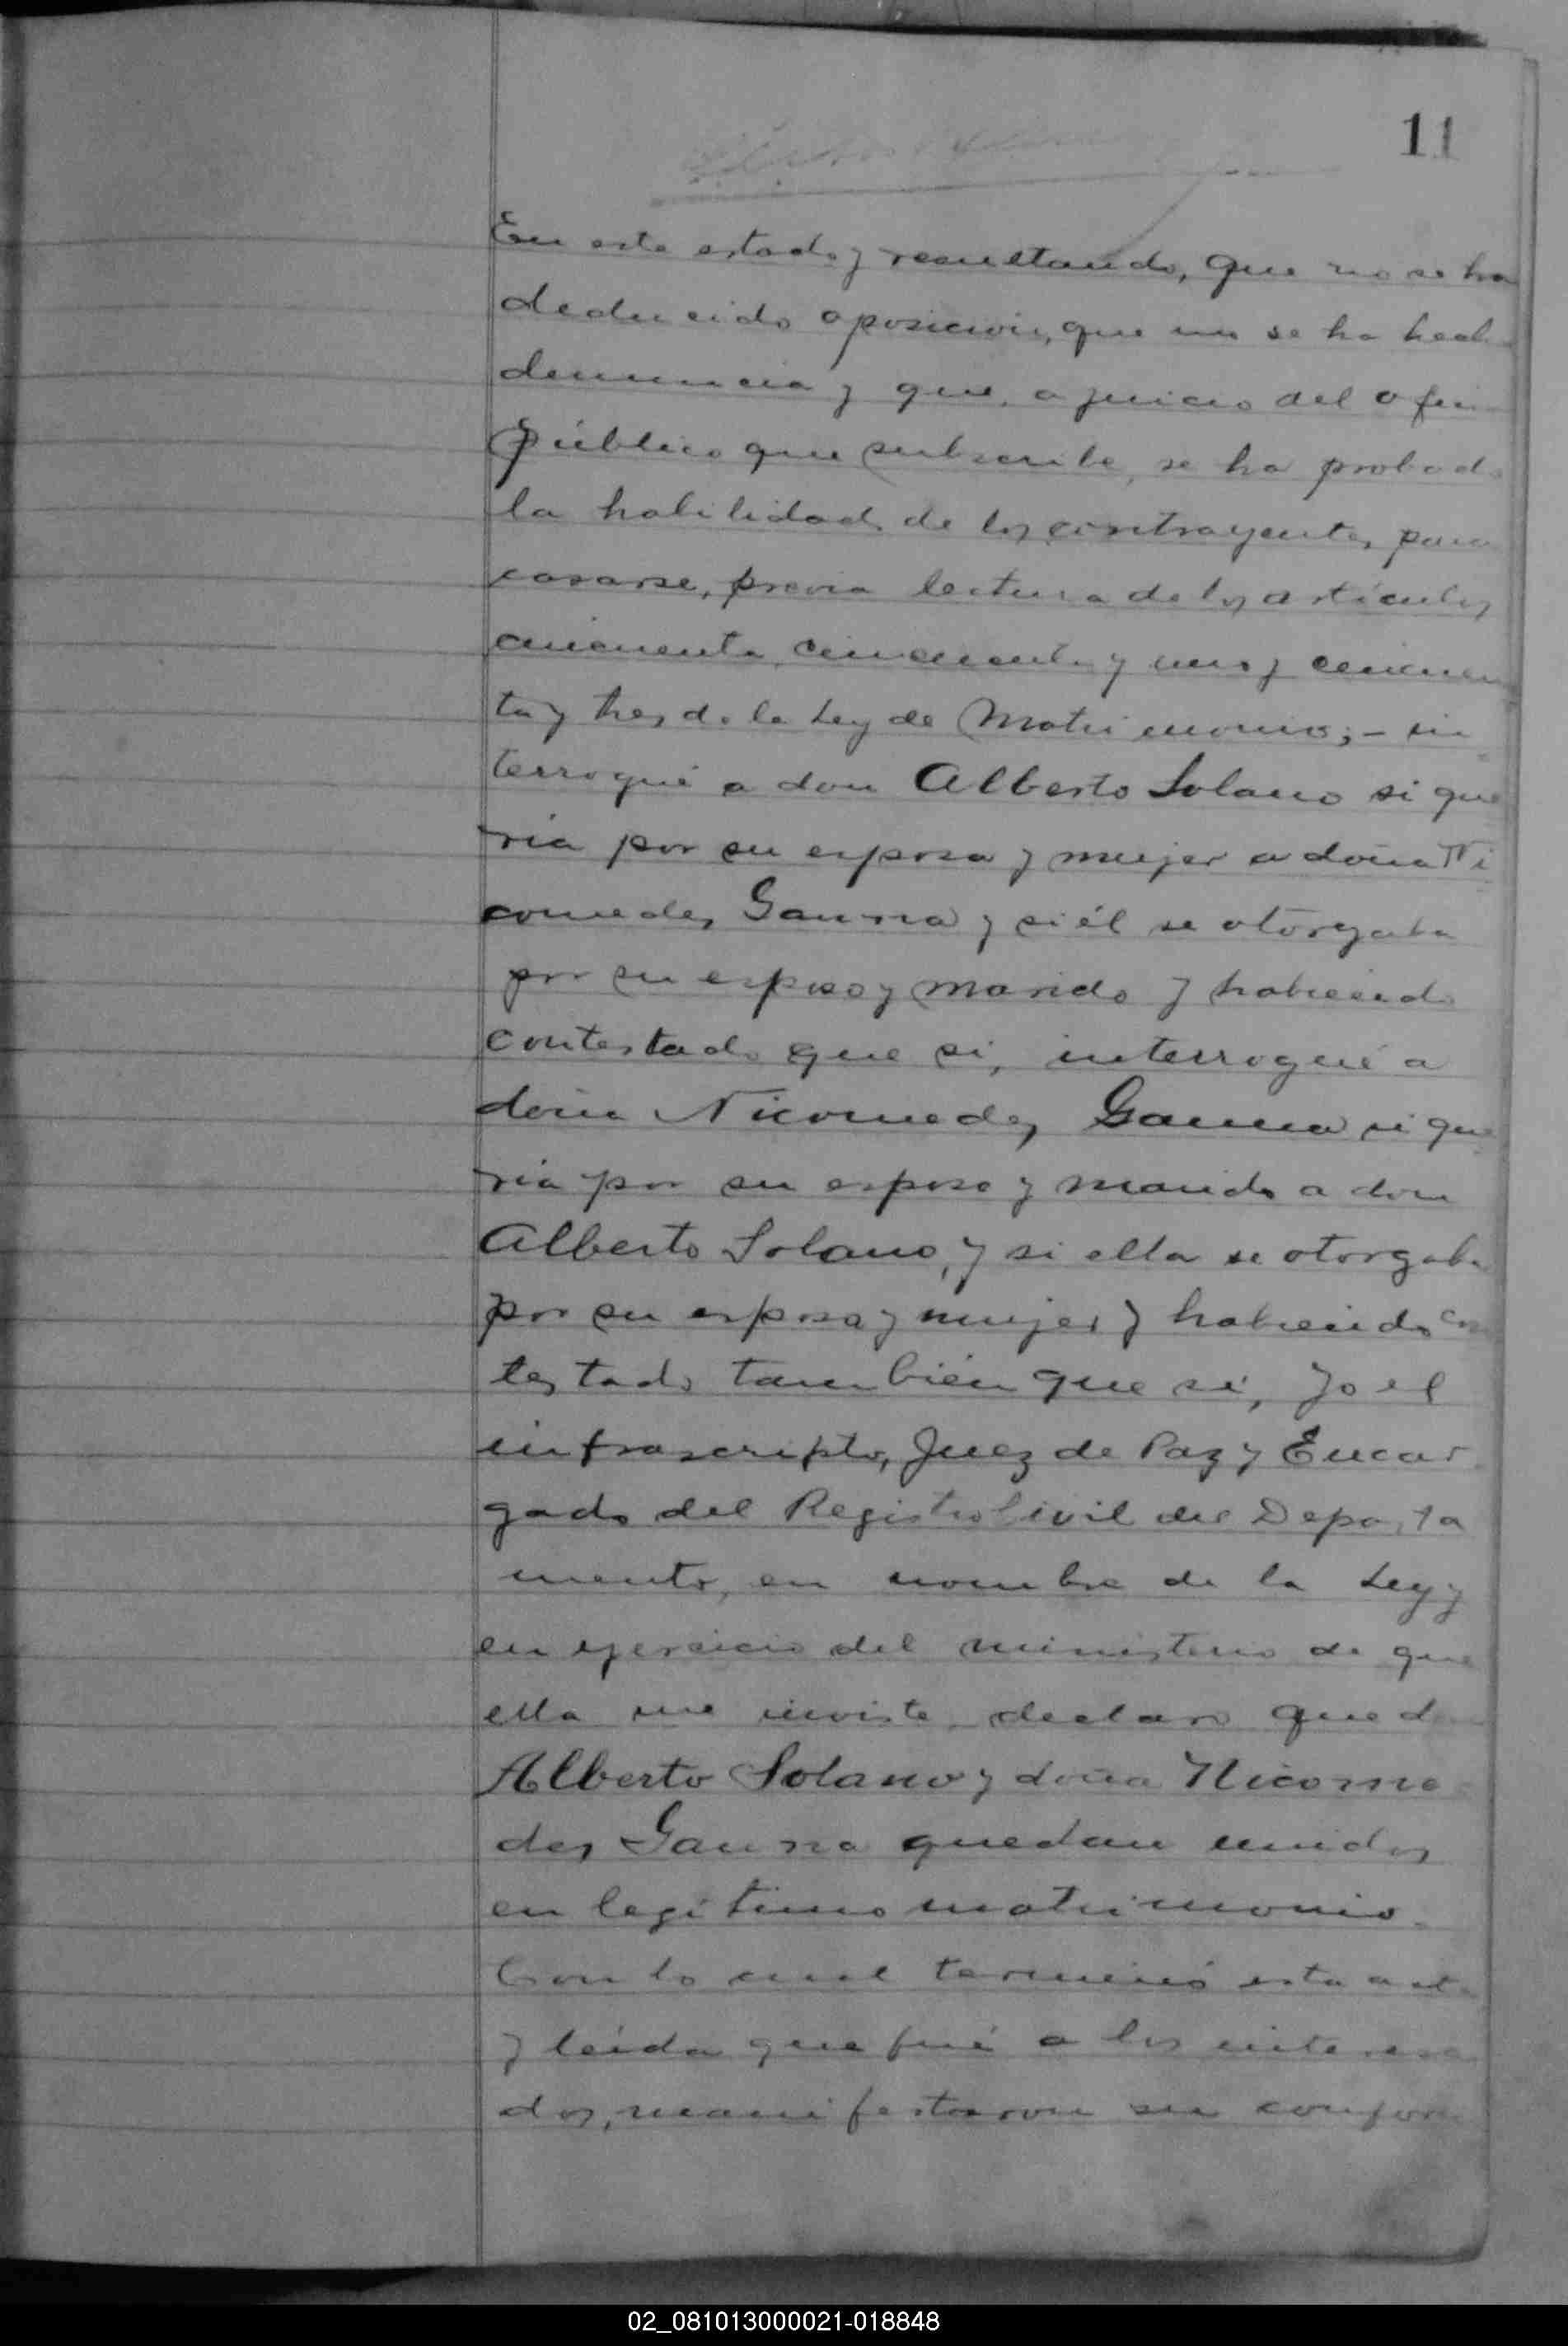 11
En este estado y resultando, que no se ha
deducido oposición, que no se ha hech
denuncia y que, a juicio del ofi
Público que subscribe, se ha probado
la habilidad de los contrayentes para
casarse, previa lectura de los artículos
cincuenta, cincuenta y uno y cincuen
ta y tres de la Ley de Matrimonio; - in
terrogué a don Alberto Solano si que
ría por su esposa y mujer a doña Ni
comedes Gauna y si él se otorgaba
por su esposo y marido y habiendo
contestado que sí, interrogué a
doña Nicomedes Gauna si que
ría por su esposo y marido a don
Alberto Solano, y si ella se otorgaba
por su esposa y mujer y habiendo con
testado también que sí, Yo el
infrascripto, Juez de Paz y Encar
gado del Registro Civil del Departa
mento, en nombre de la Ley y
en ejercicio del ministerio de que
ella me inviste, declaro que d
Alberto Solano y doña Nicome
des Gauna quedan unidos
en legítimo matrimonio.
Con lo cual terminó esta acta
y leída que fué a los interesa
dos, manifestaron su confor
02_081013000021-018848